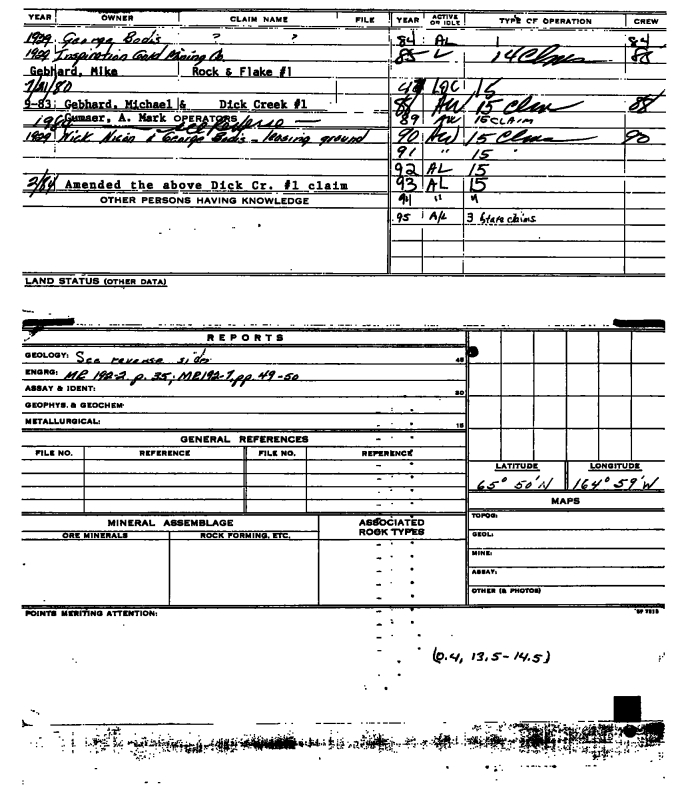 YEAR OWNER CLAIM NAME FILE YEAR ACTIVE OR IDLE TYPE OF OPERATION CREW
1939 George Bodis ? ? 84 AL 1 84
1939 Inspiration Gold Mining Co. 85 14 Clms 88
Gebhard, Mike Rock & Flake #1
7/21/80 15
9-83 Gebhard, Michael & Dick Creek #1 88 AW 15 Clms 88
Gumaer, A. Mark OPERATORS see reverse 89 AW 15 CLAIM
1939 Nick & George Bodis - leasing ground 90 AW 15 Clms 90
91 " 15 "
92 AL 15
3/84 Amended the above Dick Cr. #1 claim 93 AL 15
OTHER PERSONS HAVING KNOWLEDGE 94 " "
95 A/L 3 State claims
LAND STATUS (OTHER DATA)
REPORTS
GEOLOGY: See reverse side 45
ENGRG: MR 192-2 p. 35; MR192-7, pp. 49-50
ASSAY & IDENT: 30
GEOPHYS. & GEOCHEM:
METALLURGICAL: 15
GENERAL REFERENCES
FILE NO. REFERENCE FILE NO. REFERENCE
LATITUDE LONGITUDE
65° 50' N 164° 59' W
MAPS
MINERAL ASSEMBLAGE ASSOCIATED ROCK TYPES
ORE MINERALS ROCK FORMING, ETC.
TOPOG:
GEOL:
MINE:
ASSAY:
OTHER (& PHOTOS)
POINTS MERITING ATTENTION:
(0.4, 13.5-14.5)